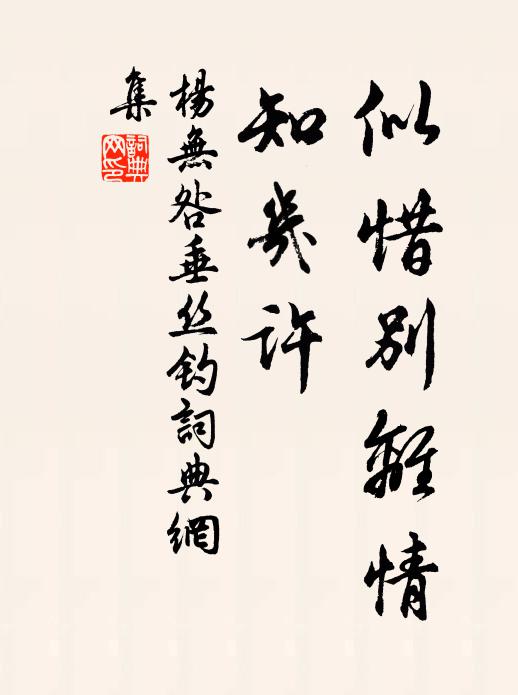 似惜別離情
知幾許
楊無咎垂丝钓詞典網
集
詞典网印